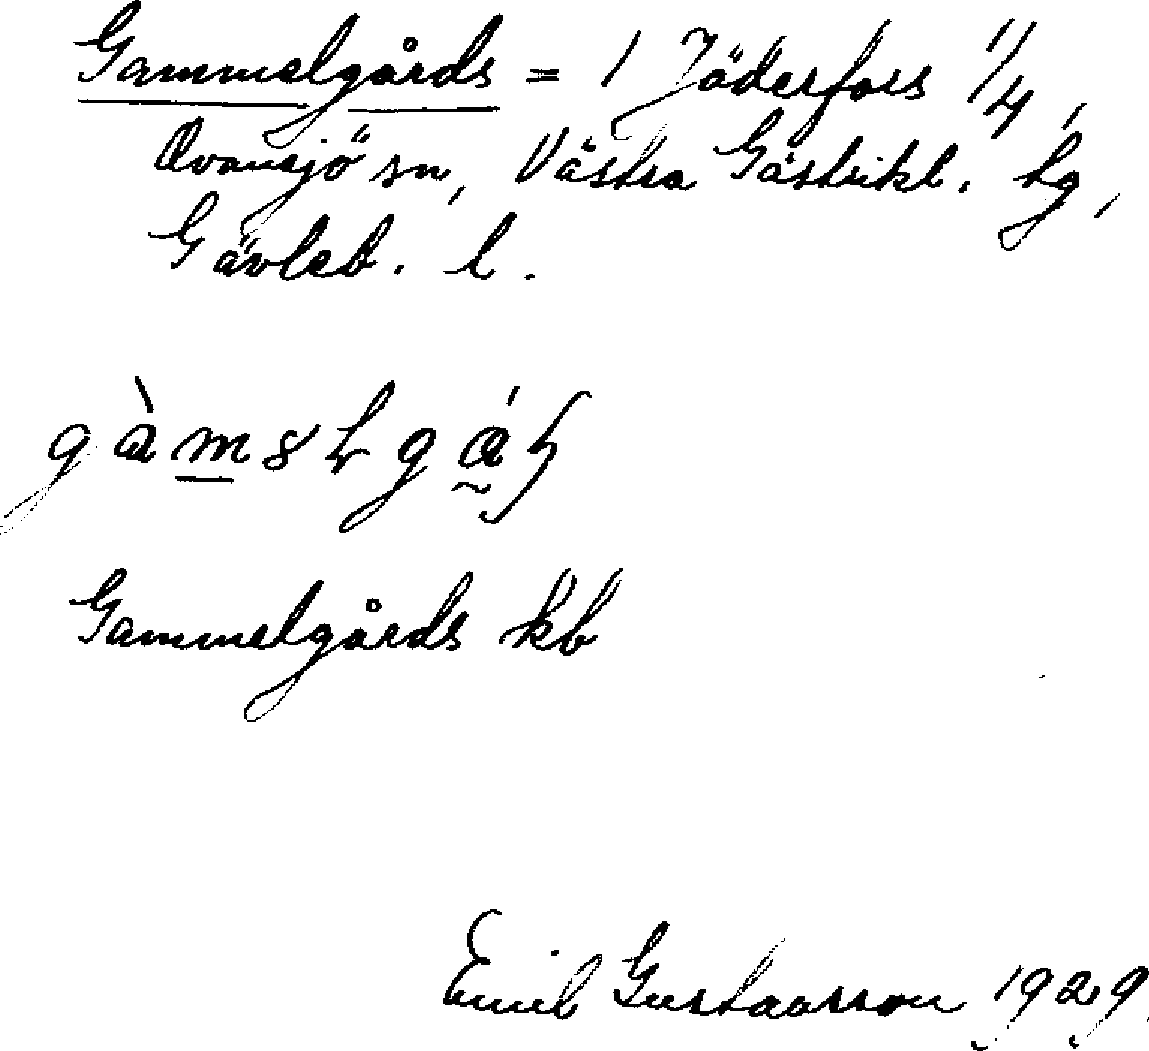 Gammelgårds = 1 Jäderfors 1/4,
Ovansjö sn, Västra Gästrikl. tg,
Gävleb. l.
Gammelgårds kb
Emil Gustavsson 1929.